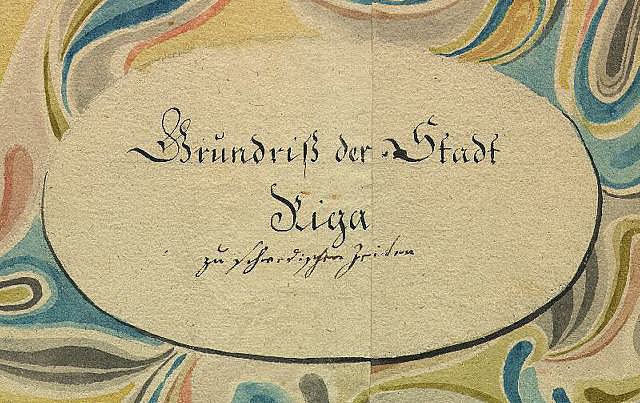 Grundriß der Stadt
Riga
zu schwedischen Zeiten